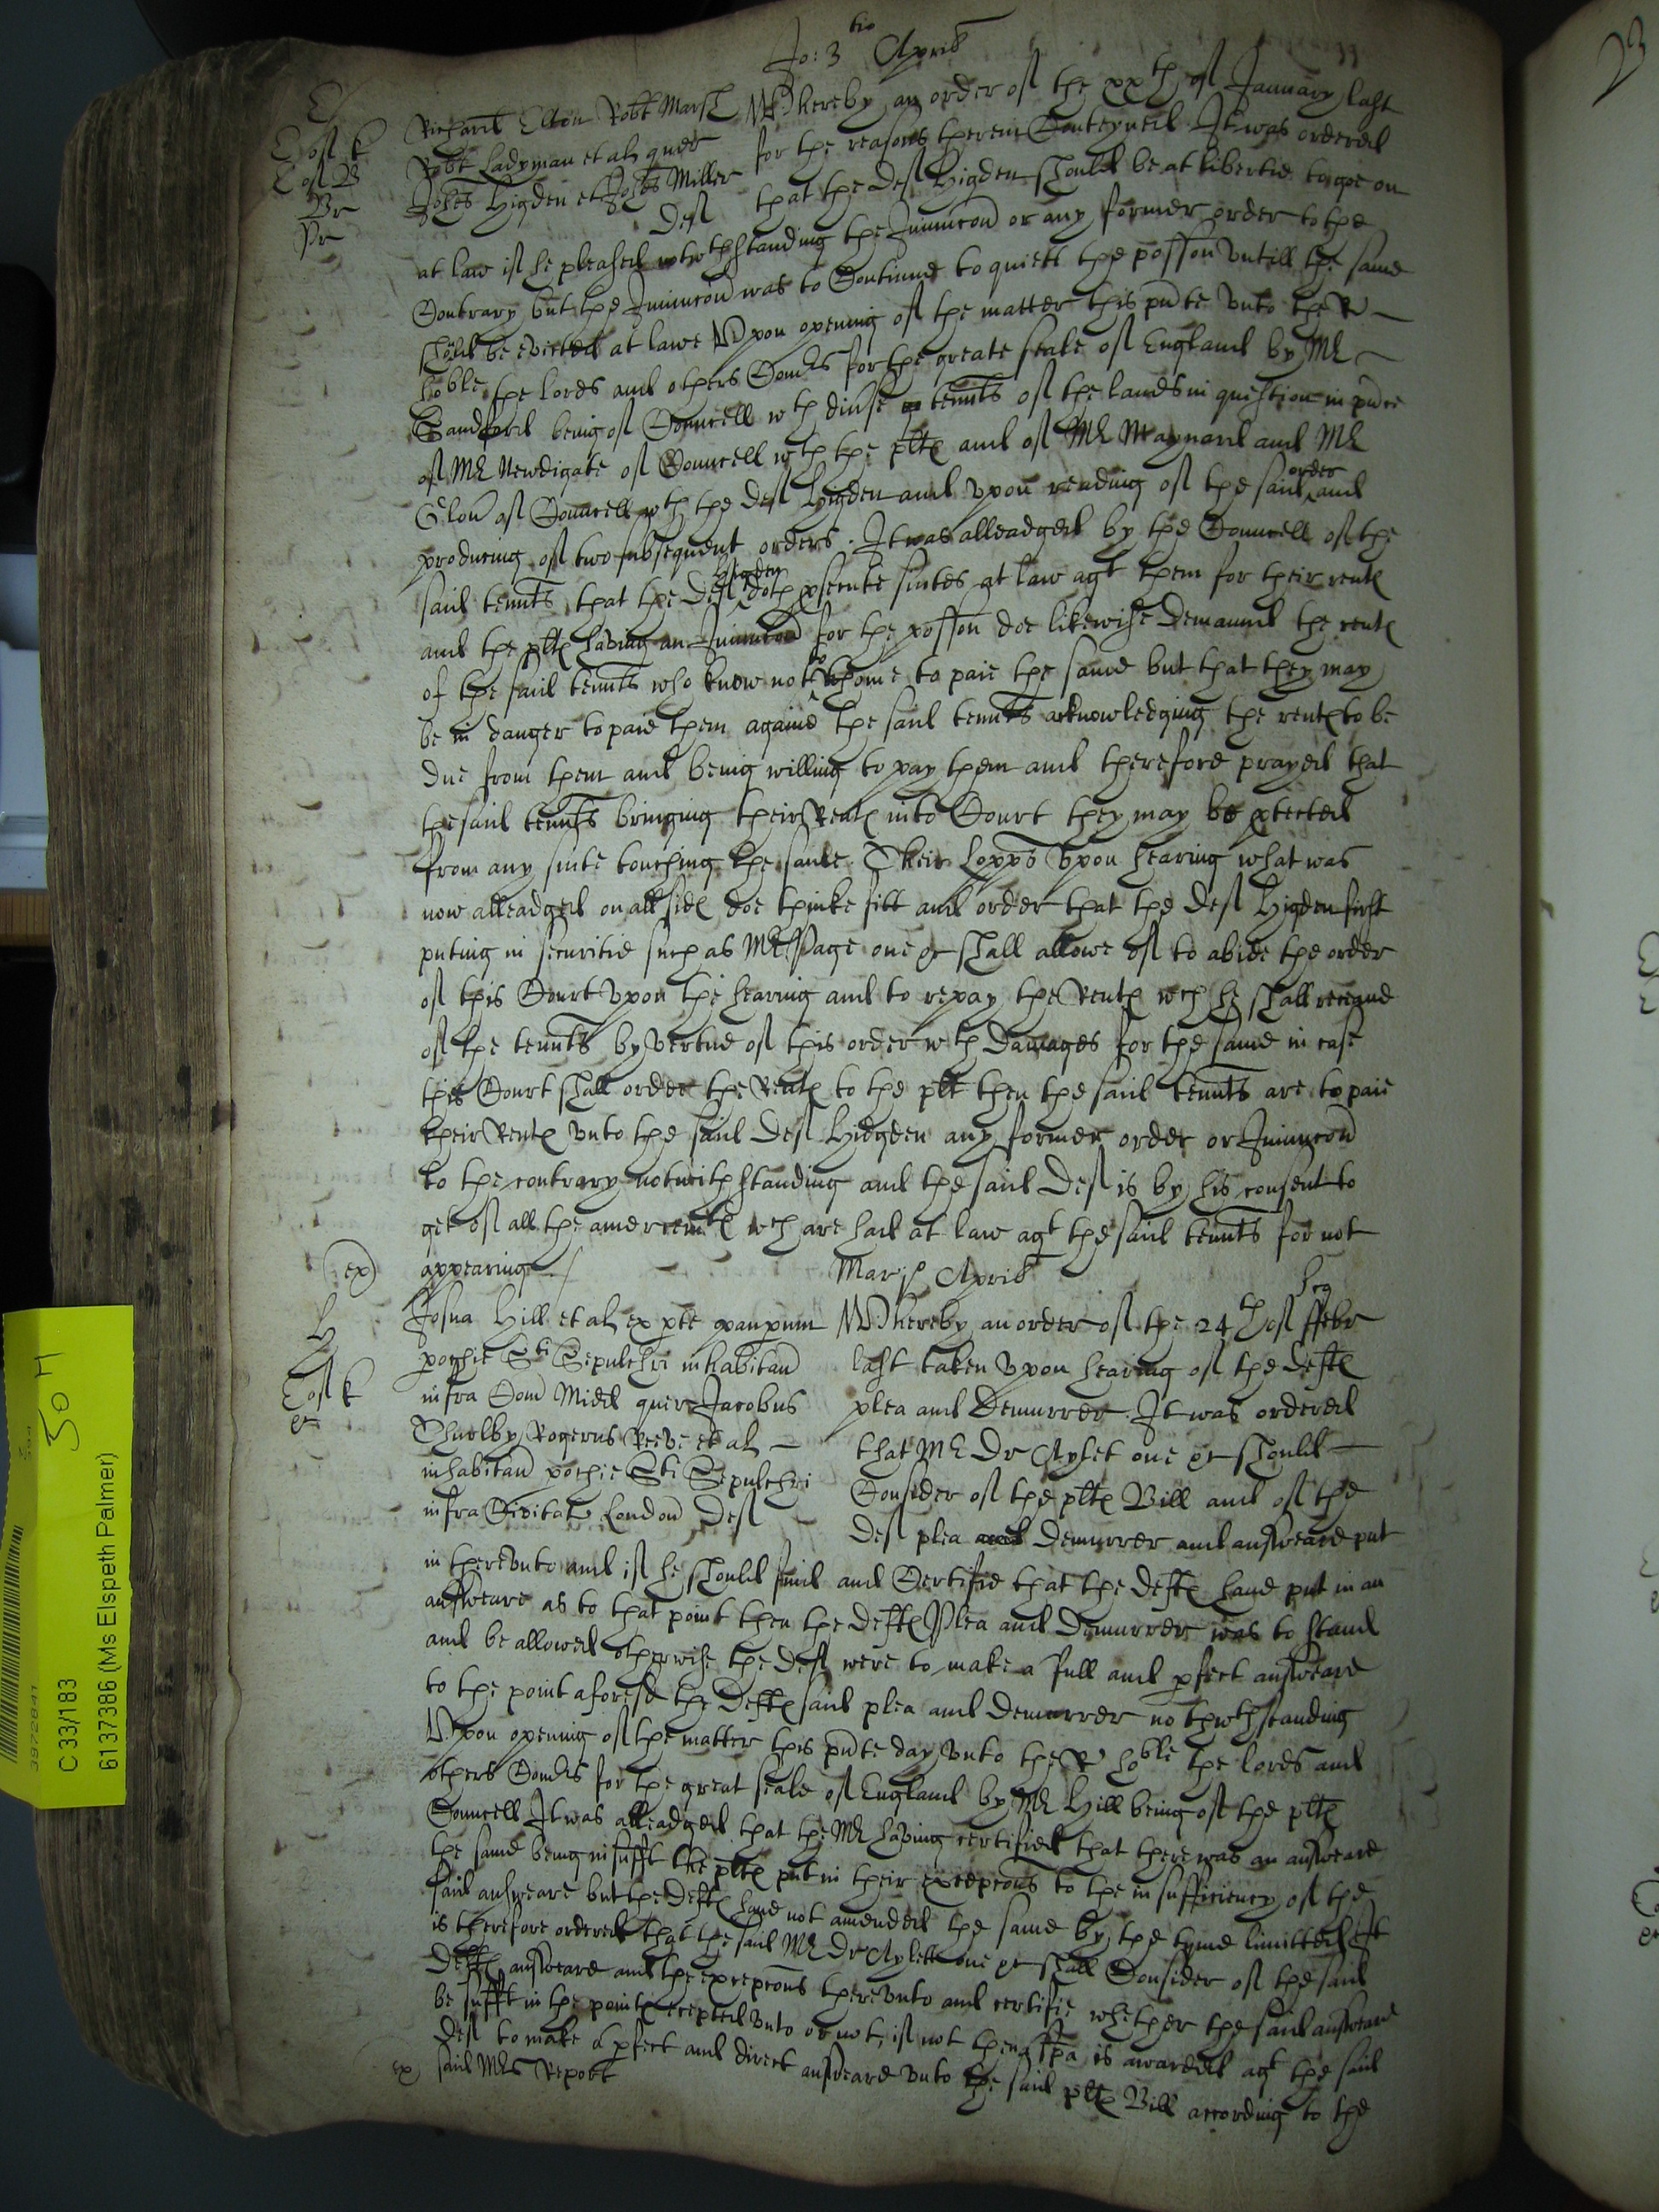 Jo: 3 tio April
E
Richard Elton Robt Marsh Whereby an order of the xxth of January last
Robt Ladyman et al quer for the reasons therein Conteyned It was ordered
Johes Higden et Johes Miller that the Def Higden should be at libertie to goe on
Def
at law if he pleased notwthstanding the Iniunccon or any former order to the
Contrary but the Iniunccon was to Continue to quiett the possion vntill the same
should be evicted at lawe Vpon opening of the matter this pnte vnto the R
hoble the lords and others Comrs for the greate seale of England by Mr
Sandford being of Councell wth diuse tennts of the lands in question in pnce
of Mr Newdigate of Councell wth the plts and of Mr Maynard and Mr
of Councell wth the Def Higden and vpon reading of the said order and
producing of two subsequent orders. It was alleadged by the Councell of the
said tennts that the Def Higden doth psecute suites at law agt them for their rents
and the plts having an Iniunccon for the possion doe likewise Demaund the rents
of the said tennts who know not to whome to paie the same but that they may
be in danger to paie them againe the said tennts acknowledging the rents to be
due from them and being willing to pay them and therefore prayed that
the said tennts bringing their Rents into Court they may be ptected
from any suite touching the same. Their Lopps vpon hearing what was
now alleadged on all sides doe thinke fitt and order that the Def Higden first
puting in securitie such as Mr Page one &c shall allowe of to abide the order
of this Court vpon the hearing and to repay the Rents wch he shall receaue
of the tennts by vertue of this order wth Damages for the same in case
this Court shall order the Rents to the plt then the said tennts are to paie
their Rents vnto the said Def Hidgden any former order or Iniunccon
to the contrary notwithstanding and the said Def is by his consent to
get of all the amerciamts wch are had at law agt the said tennts for not
appearing
ex
Mar jo Aprilis
H
Josua Hill et al ex pte paupum Whereby an order of the 24th of ffebr
pochie Sti Sepulchri inhabitan last taken vpon hearing of the defts
infra Com Midd quer Jacobus plea and Demurrer. It was ordered
Thuelby Rogerus Reeve et al that Mr Dr Aylet one &c should
inhabitan pochie Sti Sepulchri Consider of the plts Bill and of the
infra Civitat London Def Def plea and Demurrer and answeare put
in therevnto and if he should find and Certifie that the defts haue put in an
answeare as to that point then the defts Plea and Demurrer was to stand
and be allowed otherwise the Def were to make a full and pfect answeare
to the point aforesd the Defts said plea and demurrer notwthstanding
Vpon opening of the matter this pnte day vnto the R hoble the lords and
others Comrs for the great seale of England by Mr Hill being of the plts
Councell It was alleadged that the Mr having certified that there was an answeare
the same being insufft the plts put in their excepcons to the insufficiency of the
said answeare but the Defts haue not amended the same by the tyme limitted It
is therefore ordered that the said Mr Dr Aylett one &c shall Consider of the said
Defts answeare and the excepcons therevnto and certifie whether the said answeare
be sufft in the points excepted vnto or not, if not then a spa is awarded agt the said
Def to make a pfect and direct answeare vnto the said plts Bill according to the
ex said Mrs Report
50 H
39728411
C 33/183
6137386 (Ms Elspeth Palmer)